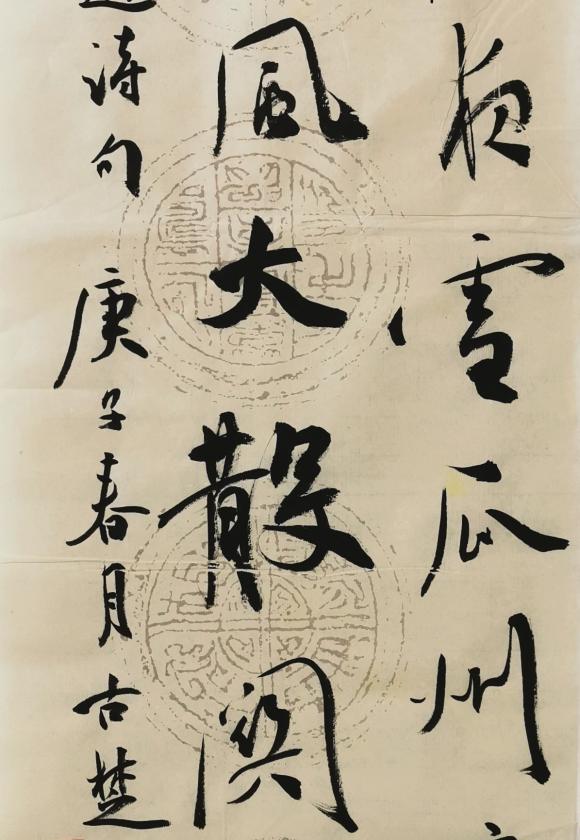 夜雪瓜州
風大散関
诗句 庚子春月古楚